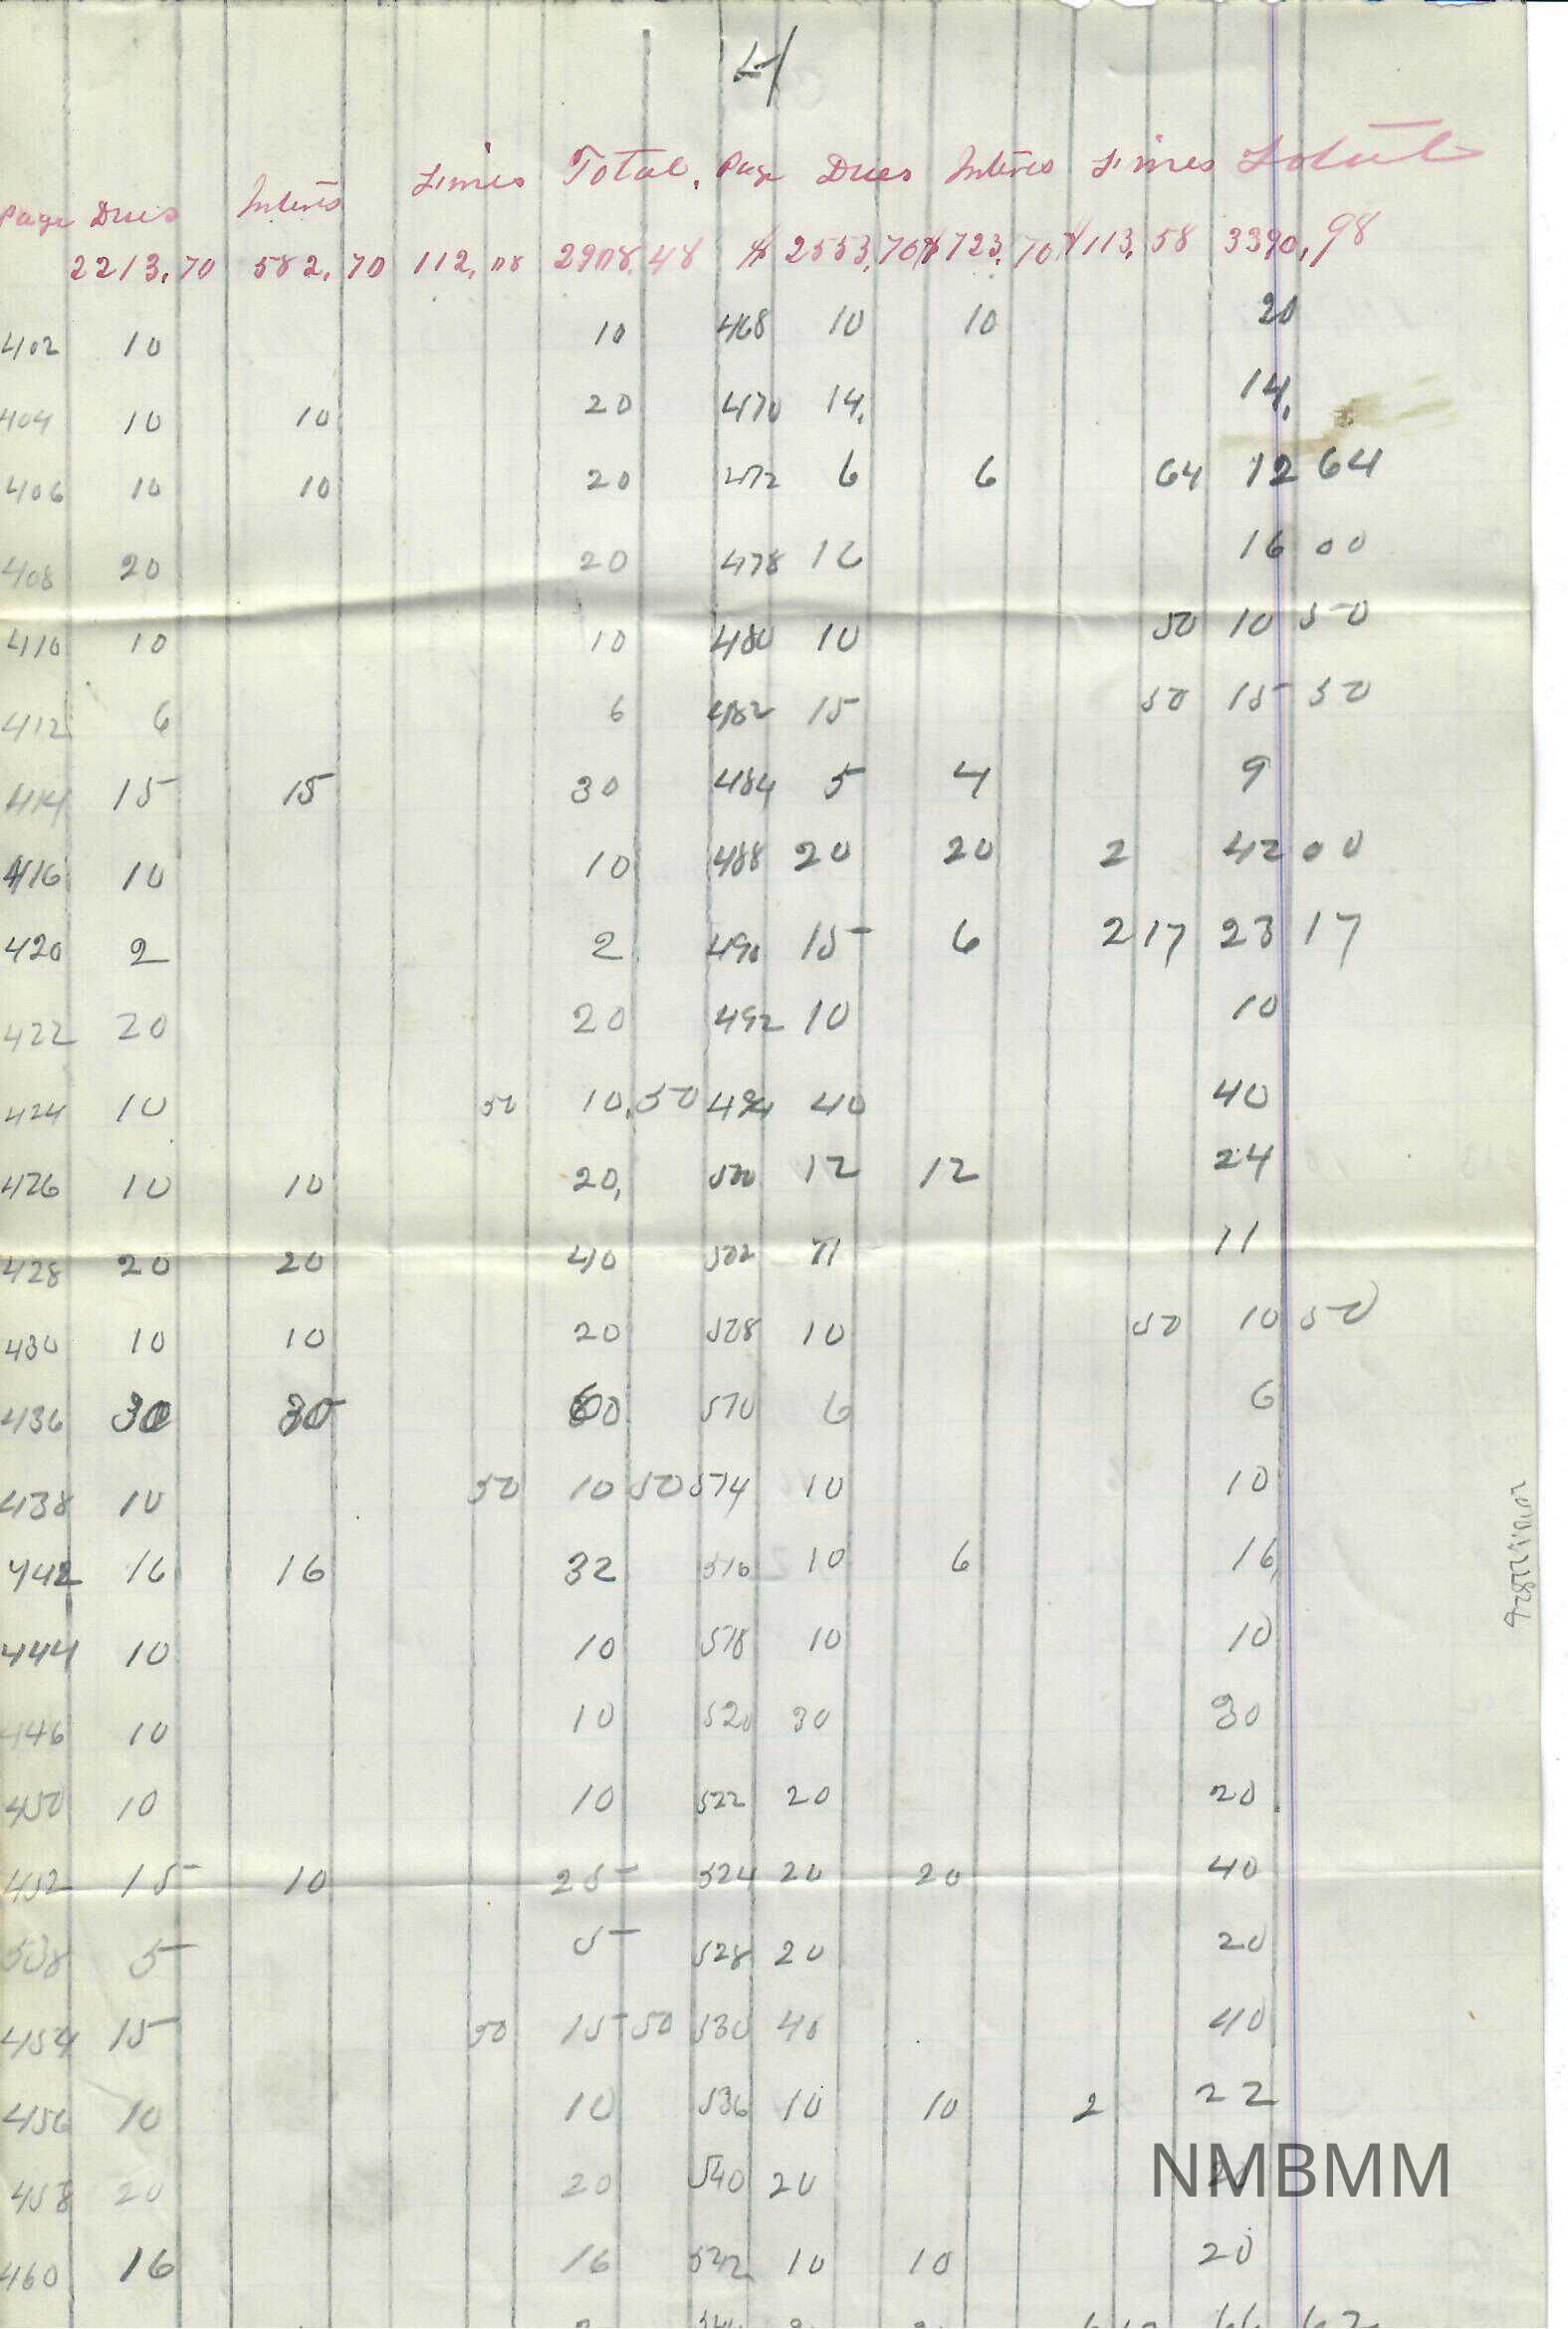 4
Page Dues Interes Fines Total. Page Dues Interes Fines Total
2213.70 582.70 112.08 2908.48 $ 2553.70 $ 723.70 $ 113.58 3390.98
402 10 10 468 10 10 20
404 10 10 20 470 14. 14.
406 10 10 20 472 6 6 64 12 64
408 20 20 478 16 16 00
410 10 10 480 10 50 10 50
412 6 6 482 15 50 15 50
414 15 15 30 484 5 4 9
416 10 10 488 20 20 2 42 00
420 2 2 490 15 6 2 17 23 17
422 20 20 492 10 10
424 10 50 10.50 494 40 40
426 10 10 20. 500 12 12 24
428 20 20 40 502 11 11
430 10 10 20 508 10 50 10 50
436 30 30 60 510 6 6
438 10 50 10 50 514 10 10
442 16 16 32 516 10 6 16
444 10 10 518 10 10
446 10 10 520 30 30
450 10 10 522 20 20
452 15 10 25 524 20 20 40
508 5 5 528 20 20
454 15 50 15 50 530 40 40
456 10 10 536 10 10 2 22
458 20 20 540 20 20
460 16 16 542 10 10 20
NMBMM